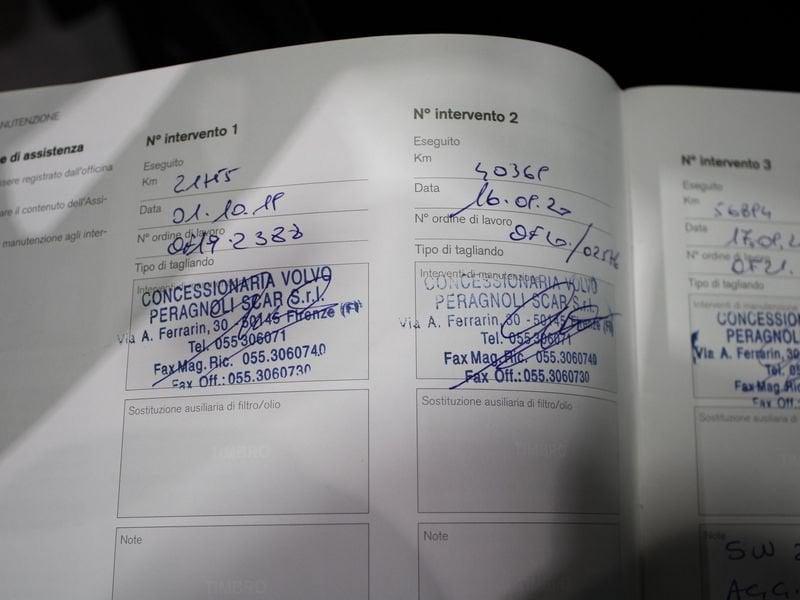 NUTENZIONE
e di assistenza
ssere registrato dall'officina
are il contenuto dell'Assi-
manutenzione agli inter-
N° intervento 1
Eseguito
Km
Data 01.10.19
N° ordine di lavoro
Tipo di tagliando
Interventi di
CONCESSIONARIA VOLVO
PERAGNOLI SCAR S.r.l.
Via A. Ferrarin, 30 - 50145 Firenze (FI)
Tel. 055.306071
Fax Mag. Ric. 055.3060740
Fax Off.: 055.3060730
Sostituzione ausiliaria di filtro/olio
TIMBRO
Note
TIMBRO
N° intervento 2
Eseguito
Km 40368
Data 16.09.20
N° ordine di lavoro
Tipo di tagliando
Interventi di manutenzione
CONCESSIONARIA VOLVO
PERAGNOLI SCAR S.r.l.
Via A. Ferrarin, 30 - 50145 Firenze (FI)
Tel. 055.306071
Fax Mag. Ric. 055.3060740
Fax Off.: 055.3060730
Sostituzione ausiliaria di filtro/olio
TIMBRO
Note
N° intervento 3
Eseguito
Km 56894
Data 17.09.2
N° ordine di lavoro
OF21.
Tipo di tagliando
Interventi di manutenzione
CONCESSION
PERAGNOL
Via A. Ferrarin, 30
Tel. 05
Fax Mag. Ric
Fax Off.:
Sostituzione ausiliaria di
Note
SW 2
AGG